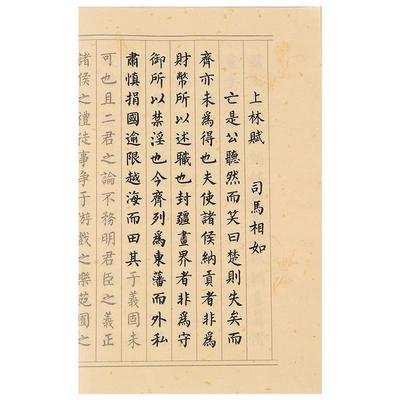 上林賦 司馬相如
亡是公聽然而笑曰楚則失矣而
齊亦未爲得也夫使諸侯納貢者非爲
財幣所以述職也封疆畫界者非爲守
御所以禁淫也今齊列爲東藩而外私
肅慎捐國逾限越海而田其于義固未
可也且二君之論不務明君臣之義正
諸侯之禮徒事争于游戲之樂苑囿之